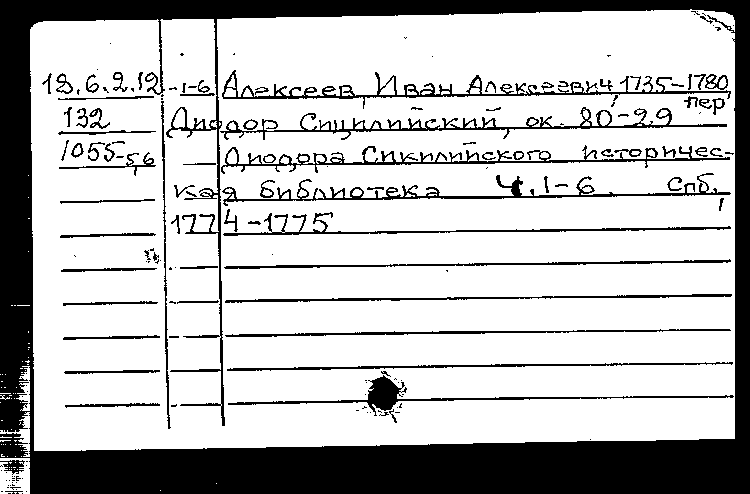 18.6.2.12 -1-6 Алексеев, Иван Алексеевич, 1735-1780, пер.
132 Диодор Сицилийский, ок. 80-29
1055-5,6 — Диодора Сикилийского историчес-
кая библиотека Ч.1-6. Спб.,
1774-1775.